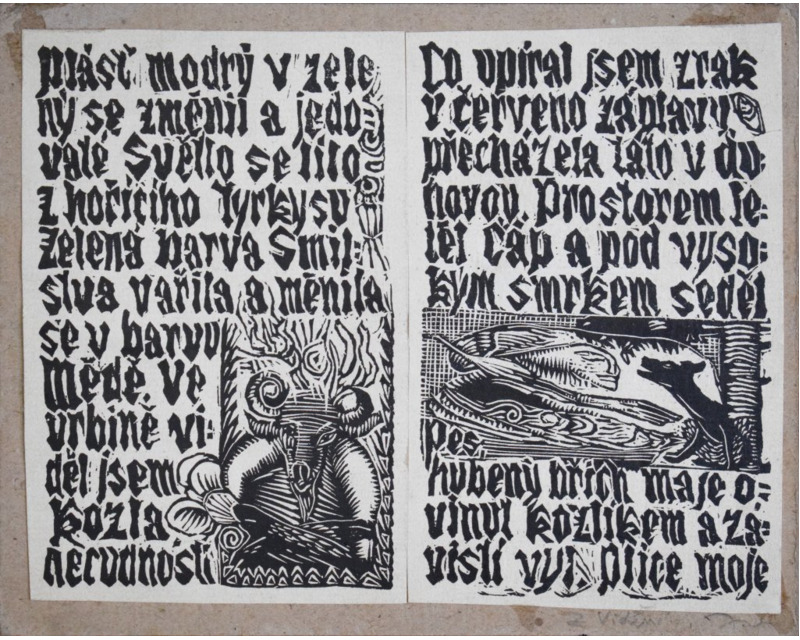 Plášť modrý v zele
ný se změnil a jedo
valé Světlo se lilo
z hořícího Tyrkysu
Zelená barva Smil=
stva vařila a měnila
se v barvu
Mědě. Ve
vrbině vi=
děl jsem
Kozla
nerudnosti
Co upíral jsem zrak
v červeno záplavy
přecházela tato v du=
hovou. Prostorem le=
těl Čáp a pod vyso=
kým smrkem seděl
Pes,
hubený břich maje o=
vinut kozlíkem a zá=
vistí vyl. Plíce moje